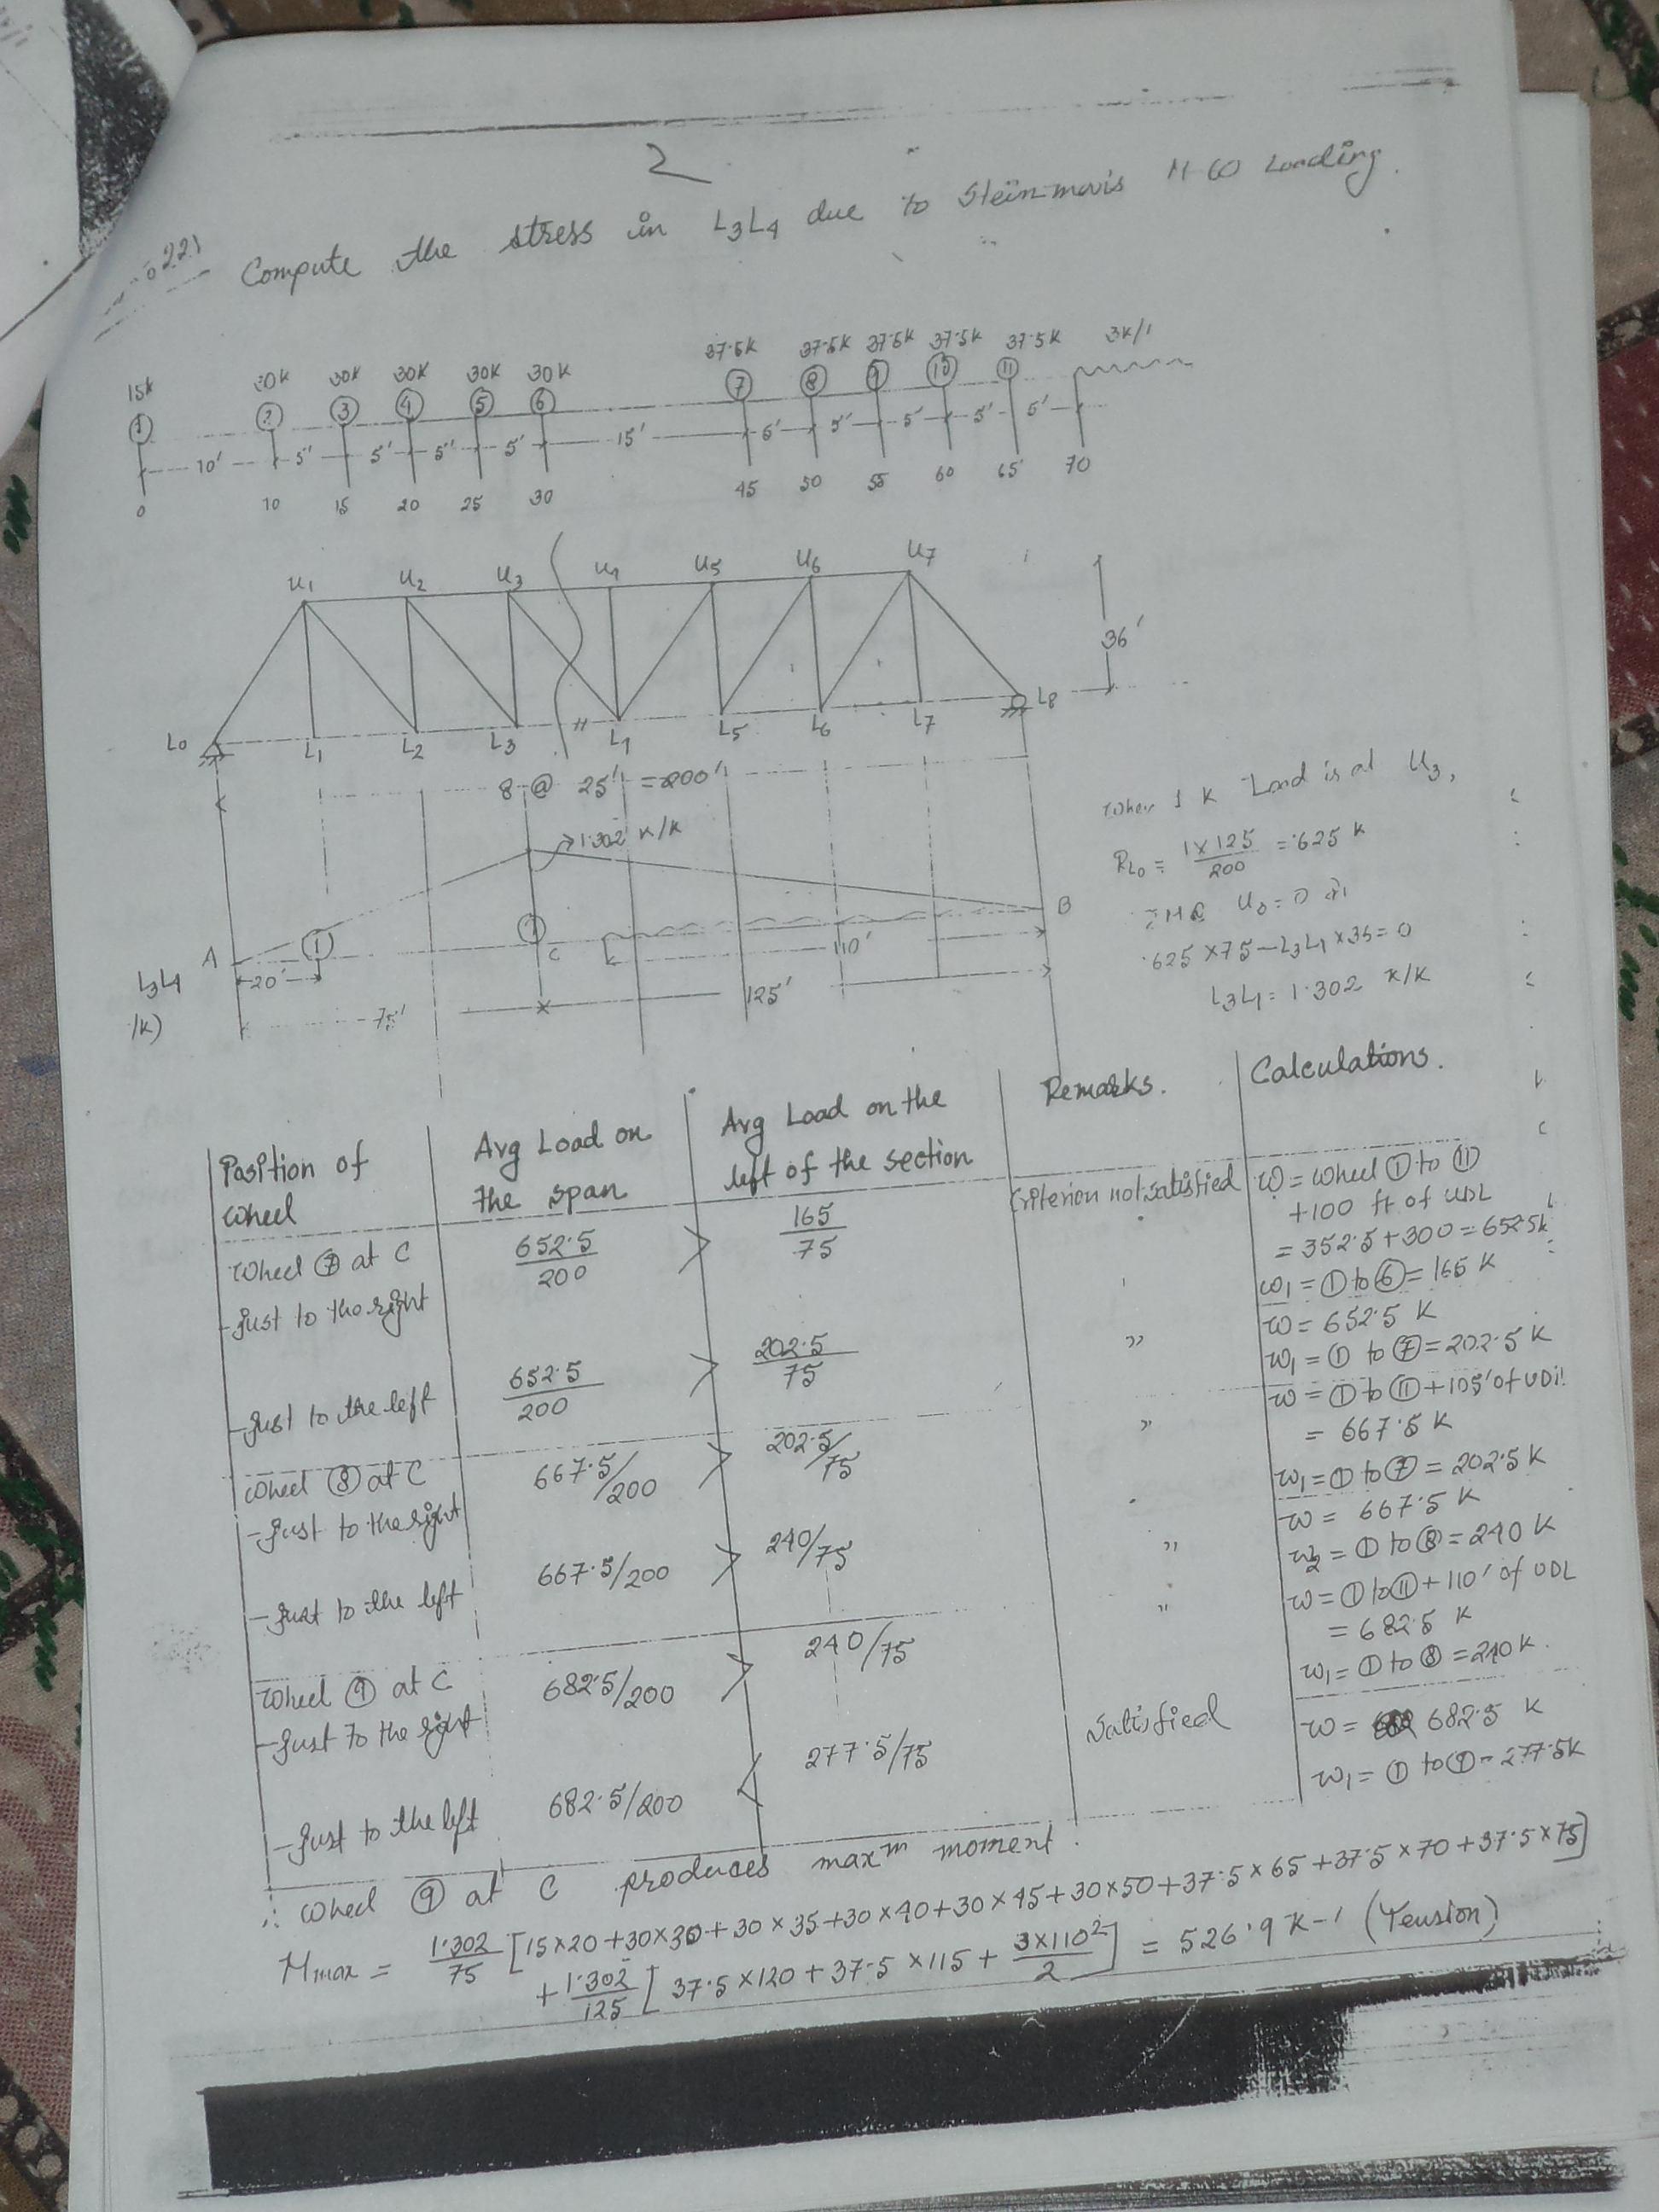 2
Compute the stress in L3L4 due to Steinmavis M-60 Loading.
15k 30k 30k 30k 30k 37.5k 37.5k 37.5k 37.5k 37.5k 3k/'
1 2 3 4 5 6 7 8 9 10 11
10' 5' 5' 5' 5' 15' 5' 5' 5' 5'
0 10 15 20 25 30 45 50 55 60 65 70
U1 U2 U3 U4 U5 U6 U7
36'
L0 L1 L2 L3 L4 L5 L6 L7 L8
8 @ 25' = 200'
1.302 K/K
A 1 C B
20' 110'
L3L4
/K)
75' 125'
When 1 K Load is at U3,
RL0 = 1×125/200 = .625 K
.625 ×75 – L3L4 ×36 = 0
L3L4 = 1.302 K/K
Position of wheel | Avg Load on the span | Avg Load on the left of the section | Remarks. | Calculations.
Wheel ⑦ at C
-Just to the right | 652.5/200 > 165/75 | Criterion not satisfied | W = Wheel ① to ⑪
+100 ft of UDL
= 352.5+300 = 652.5k
W1 = ① to ⑥ = 165 K
-Just to the left | 652.5/200 > 202.5/75 | " | W = 652.5 K
W1 = ① to ⑦ = 202.5 K
Wheel ⑧ at C
-Just to the right | 667.5/200 > 202.5/75 | " | W = ① to ⑪ + 105' of UDL
= 667.5 K
W1 = ① to ⑦ = 202.5 K
-Just to the left | 667.5/200 > 240/75 | " | W = 667.5 K
= ① to ⑧ = 240 K
Wheel ⑨ at C
-Just to the right | 682.5/200 > 240/75 | " | W = ① to ⑪ + 110' of UDL
= 682.5 K
W1 = ① to ⑧ = 240 K.
-Just to the left | 682.5/200 < 277.5/75 | Satisfied | W = 682.5 K
W1 = ① to ⑨ = 277.5K
∴ Wheel ⑨ at C produces maxm moment.
Mmax = 1.302/75 [15×20+30×30+30×35+30×40+30×45+30×50+37.5×65+37.5×70+37.5×75]
+ 1.302/125 [37.5×120+37.5×115+ 3×110²/2] = 526.9 K-1 (Tension)